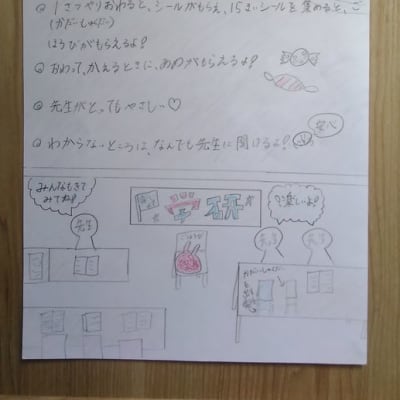 1さっやりおわると、シールがもらえ、15まいシールを集めると、ご
ほうびがもらえるよ!
おわって、かえるときに、あめがもらえるよ!
先生がとってもやさしい♡
安心
わからないところは、なんでも先生に聞けるよ!
みんなもきて
みてね!
学研
楽しいよ!
先生
先生
先生
ごほうび